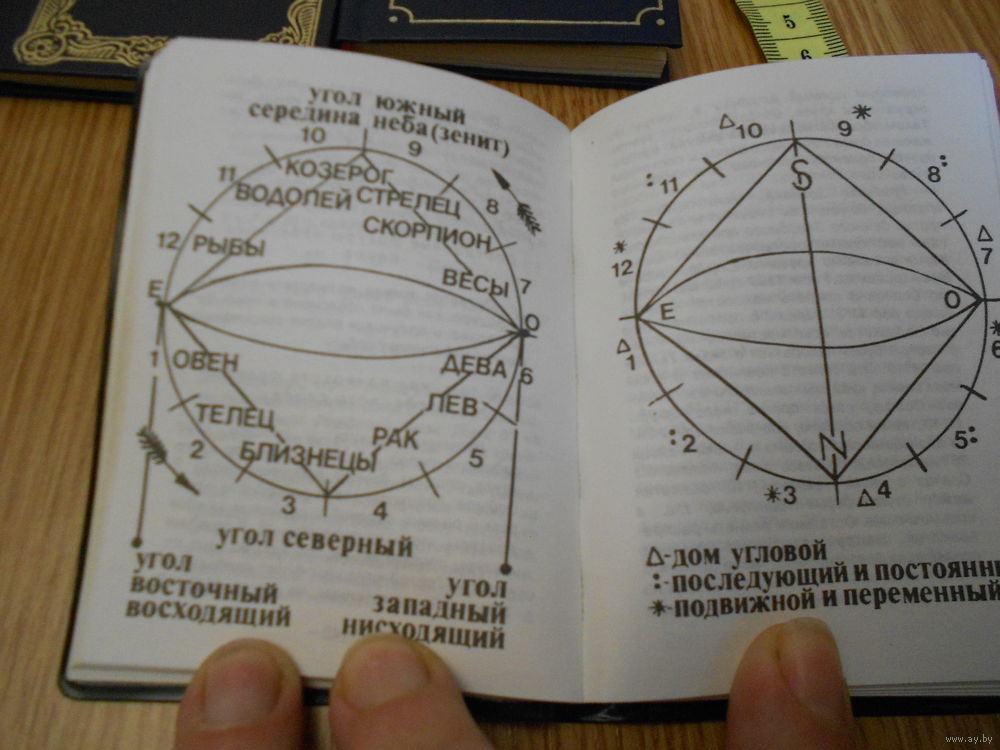 5
6
угол южный
середина неба(зенит)
10
9
11
КОЗЕРОГ
ВОДОЛЕЙ
СТРЕЛЕЦ
8
СКОРПИОН
12
РЫБЫ
ВЕСЫ
7
E
O
1
ОВЕН
ДЕВА
6
ТЕЛЕЦ
ЛЕВ
2
БЛИЗНЕЦЫ
РАК
5
3
4
угол северный
угол
восточный
восходящий
угол
западный
нисходящий
△10
9*
:11
S
8:
*
12
△
7
E
O
△
1
*
6
:2
N
5:
*3
△4
△-дом угловой
:-последующий и постоянн
*-подвижной и переменный
www.ay.by